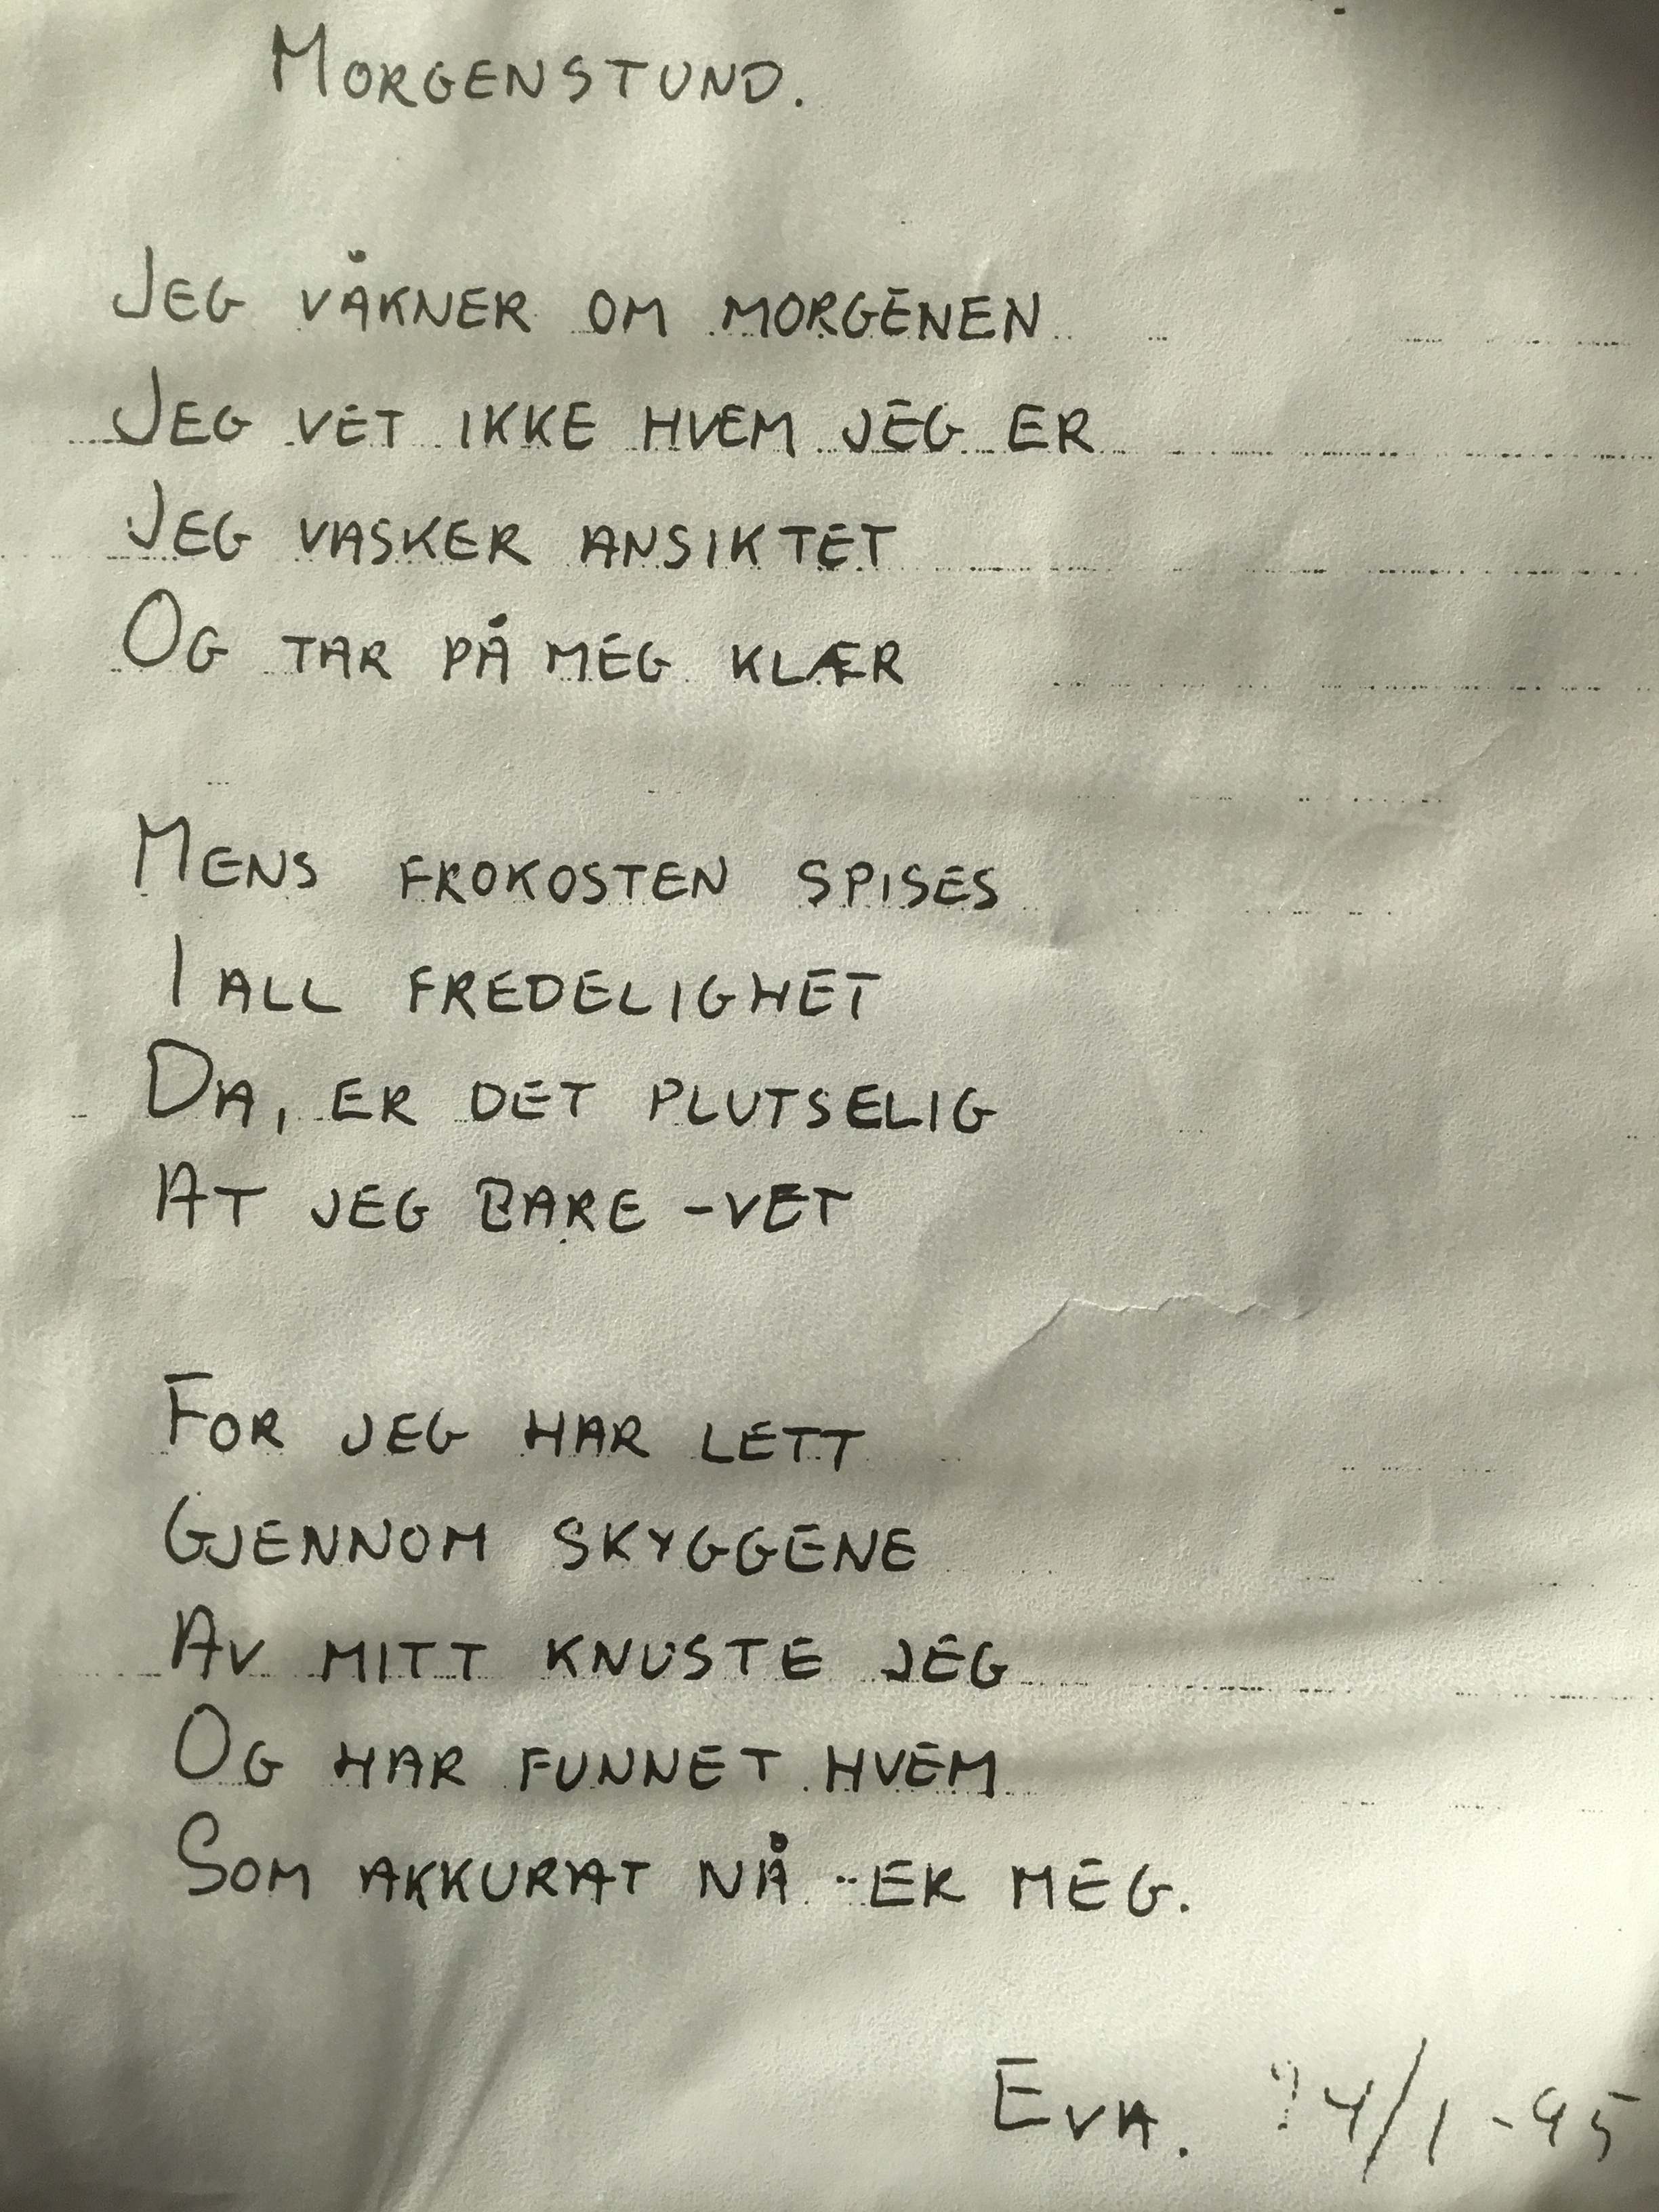 MORGENSTUND.
JEG VÅKNER OM MORGENEN
JEG VET IKKE HVEM JEG ER
JEG VASKER ANSIKTET
OG TAR PÅ MEG KLÆR
MENS FROKOSTEN SPISES
I ALL FREDELIGHET
DA, ER DET PLUTSELIG
AT JEG BARE -VET
FOR JEG HAR LETT
GJENNOM SKYGGENE
AV MITT KNUSTE JEG
OG HAR FUNNET HVEM
SOM AKKURAT NÅ -ER MEG.
EVA.